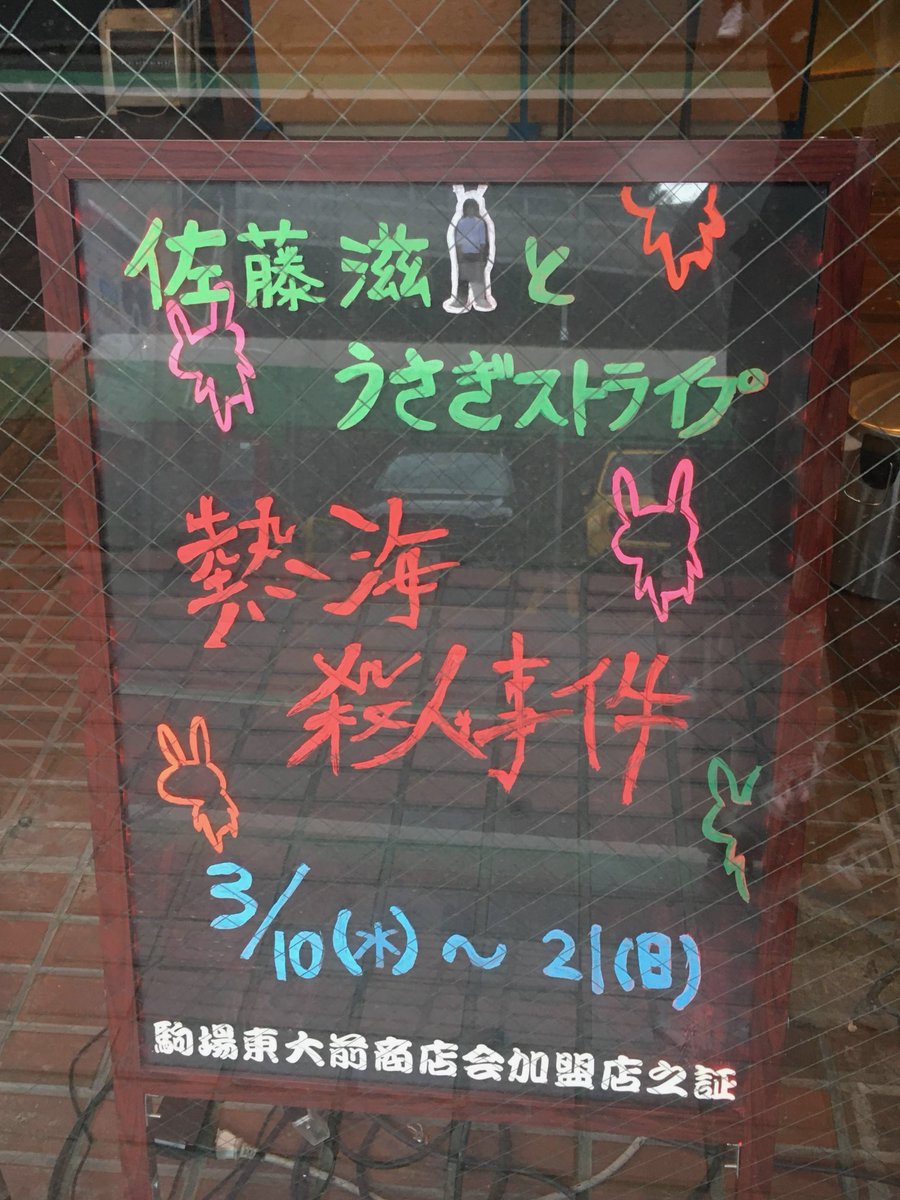 佐藤滋と
うさぎストライプ
熱海
殺人事件
3/10(水)～21(日)
駒場東大前商店会加盟店之証